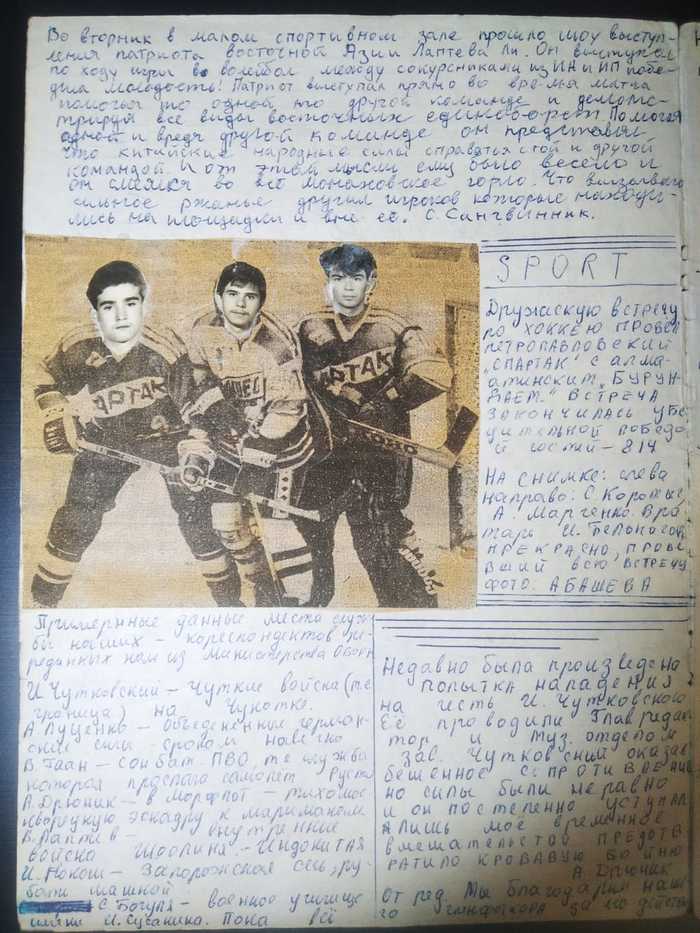 Во вторник в малом спортивном зале прошло шоу выступ-
ления патриота восточной Азии Лаптева Ли. Он выступал
по ходу игры в волейбол между сокурсниками из ИН и ИП побе-
дила молодость! Патриот выступал прямо во время матча
помогая то одной то другой команде и демонс-
трируя все виды восточных единоборств. Помогая
одной и вредя другой команде он представлял
что китайские народные силы справятся с той и другой
командой. И от этой мысли ему было весело и
он смеялся во всё Монаховское горло. Что вызывало
сильное ржанье других игроков которые находи-
лись на площадки и вне её. С. Сангвинник.
SPORT
Дружескую встречу
по хоккею провёл
петропавловский
"СПАРТАК" с алма-
атинским "БУРУН-
ДАЕМ." ВСТРЕЧА
ЗАКОНЧИЛАСЬ УБЕ
дительной победо
й гостей – 8:4
НА снимке: слева
направо: С. Коротыс
А. Марченко. Вра-
тарь И. Белоногов
ПРЕКРАСНО, ПРОВЕ
ВШИЙ ВСЮ ВСТРЕЧУ
ФОТО. АБАШЕВА
АРТАК
АРТАК
Примерные данные места служ
бы наших – кореспондентов пе-
реданных нам из Министерства Оборон
И. Чутковский – Чуткие войска (те
граница) на Чукотке.
А. Луценко – Объеденённые герман-
ские силы сроком навечно
В. Гаан – сон бат. ПВО, те служба
которая проспала самолёт Руста
А. Дрюник – в Морфлот – тихоокс
кворецкую эскадру к мариманам
В. Лаптев – внутренние
войска Шаолиня. – Индокитая
И. Кокош – Запорожская сечь, ру-
бать машкой
С. Богуля – военное училище
имени И. Сусанина. Пока всё
Недавно была произведена
попытка нападения
на честь И. Чутковского
Её проводили Главредак
тор и муз. отделом
Зав. Чутковский оказав
бешенное СОПРОТИВЛЕНИЕ
но силы были не равно
и он постепенно уступал
А лишь моё временное
вмешательство ПРЕДОТВ
РАТИЛО КРОВАВУЮ БОЙНЮ
А. Дрюник
От ред. Мы благодарим наше
го за его действ